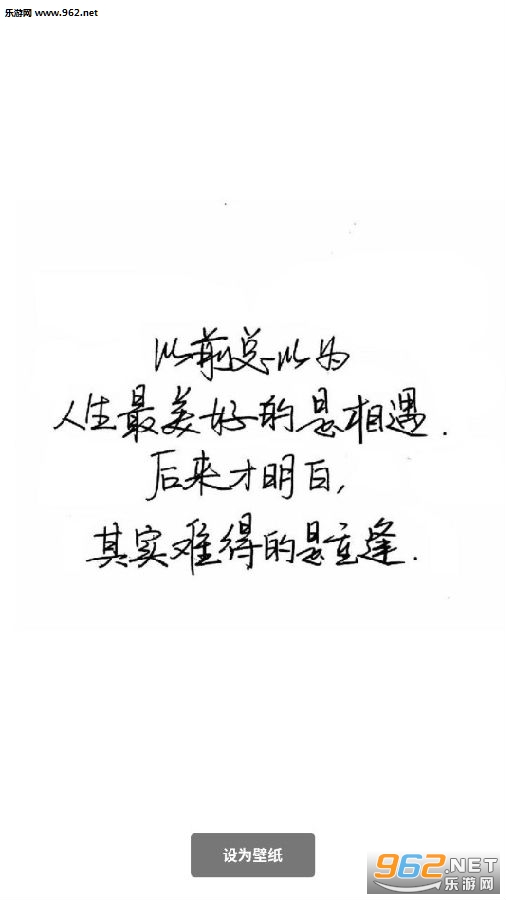 乐游网 www.962.net
以前总以为
人生最美好的是相遇.
后来才明白,
其实难得的是重逢.
设为壁纸
962.NET
乐游网